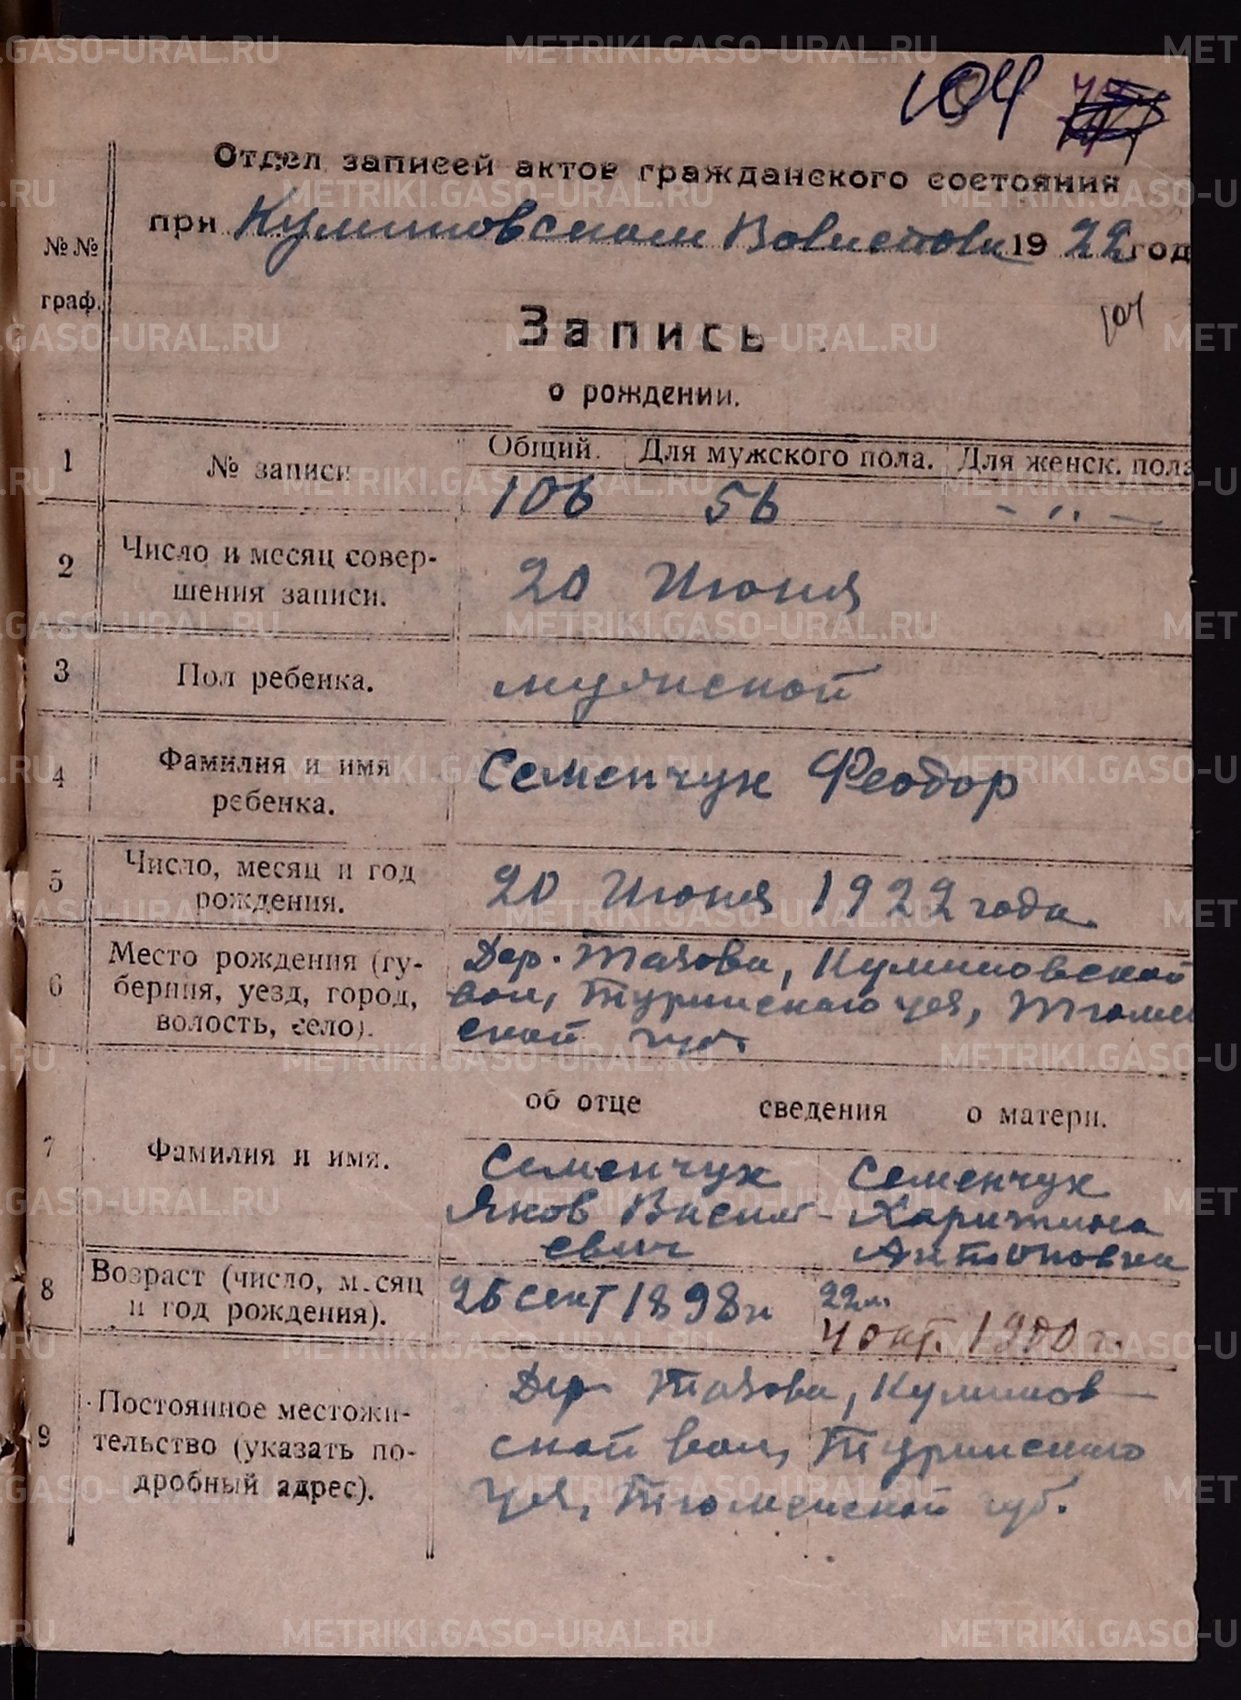 104
Отдел записей актов гражданского состояния
при Куминовском Волисполк 1922 год
№№ граф.
104
Запись
о рождении.
1 № записи Общий. Для мужского пола. Для женск. пола
106 56 - " -
2 Число и месяц совер-
шения записи.
20 Июня
3 Пол ребенка. мужской
4 Фамилия и имя
ребенка.
Семенчук Феодор
5 Число, месяц и год
рождения.
20 Июня 1922 года
6 Место рождения (гу-
берния, уезд, город,
волость, село).
Дер. Тазова, Куминовской
вол, Туринскаго уез, Тюмен
ской губ.
об отце сведения о матери.
7 Фамилия и имя.
Семенчук
Яков Василь-
евич
Семенчук
Харитина
Антоновна
8 Возраст (число, месяц
и год рождения).
26 сент 1898 г
22 л.
4 окт. 1900 г.
9 Постоянное местожи-
тельство (указать по-
дробный адрес).
Дер. Тазова, Куминов
ской вол, Туринскаго
уез, Тюменской губ.
METRIKI.GASO-URAL.RU